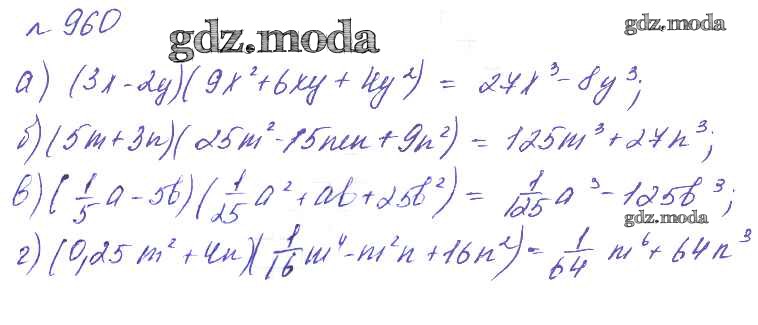 № 960
gdz.moda
gdz.moda
а) (3x-2y)(9x²+6xy+4y²) = 27x³-8y³;
б) (5m+3n)(25m²-15mn+9n²) = 125m³+27n³;
в) (1/5 a-5b)(1/25 a²+ab+25b²) = 1/125 a³-125b³;
gdz.moda
г) (0,25m²+4n)(1/16 m⁴-m²n+16n²) = 1/64 m⁶+64n³